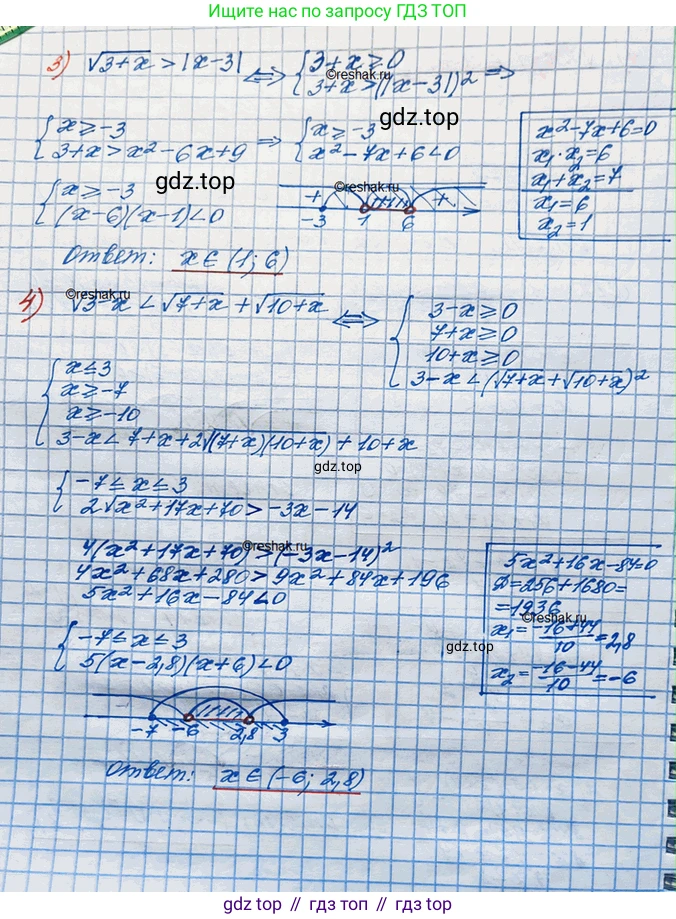 Ищите нас по запросу ГДЗ ТОП
3) √3+x > |x-3| ⇔ { 3+x ≥ 0
3+x > (|x-3|)² ⇒
©reshak.ru
gdz.top
{ x ≥ -3
3+x > x²-6x+9 ⇒ { x ≥ -3
x²-7x+6<0
x²-7x+6=0
x₁·x₂=6
x₁+x₂=7
x₁=6
x₂=1
{ x ≥ -3
(x-6)(x-1)<0
gdz.top
©reshak.ru
+ +
-3 1 6
Ответ: x ∈ (1; 6)
©reshak.ru
4) √3-x < √7+x + √10+x ⇔ { 3-x ≥ 0
7+x ≥ 0
10+x ≥ 0
3-x < (√7+x+√10+x)²
{ x ≤ 3
x ≥ -7
x ≥ -10
3-x < 7+x+2√(7+x)(10+x) + 10+x
gdz.top
{ -7 ≤ x ≤ 3
2√x²+17x+70 > -3x-14
4(x²+17x+70) > (-3x-14)²
©reshak.ru
4x²+68x+280 > 9x²+84x+196
5x²+16x-84<0
5x²+16x-84=0
D=256+1680=
=1936
©reshak.ru
x₁= -16+44/10 =2,8
x₂= -16-44/10 =-6
{ -7 ≤ x ≤ 3
5(x-2,8)(x+6)<0
gdz.top
-7 -6 2,8 3
Ответ: x ∈ (-6; 2,8)
gdz.top // гдз.топ // gdz.top // гдз.топ